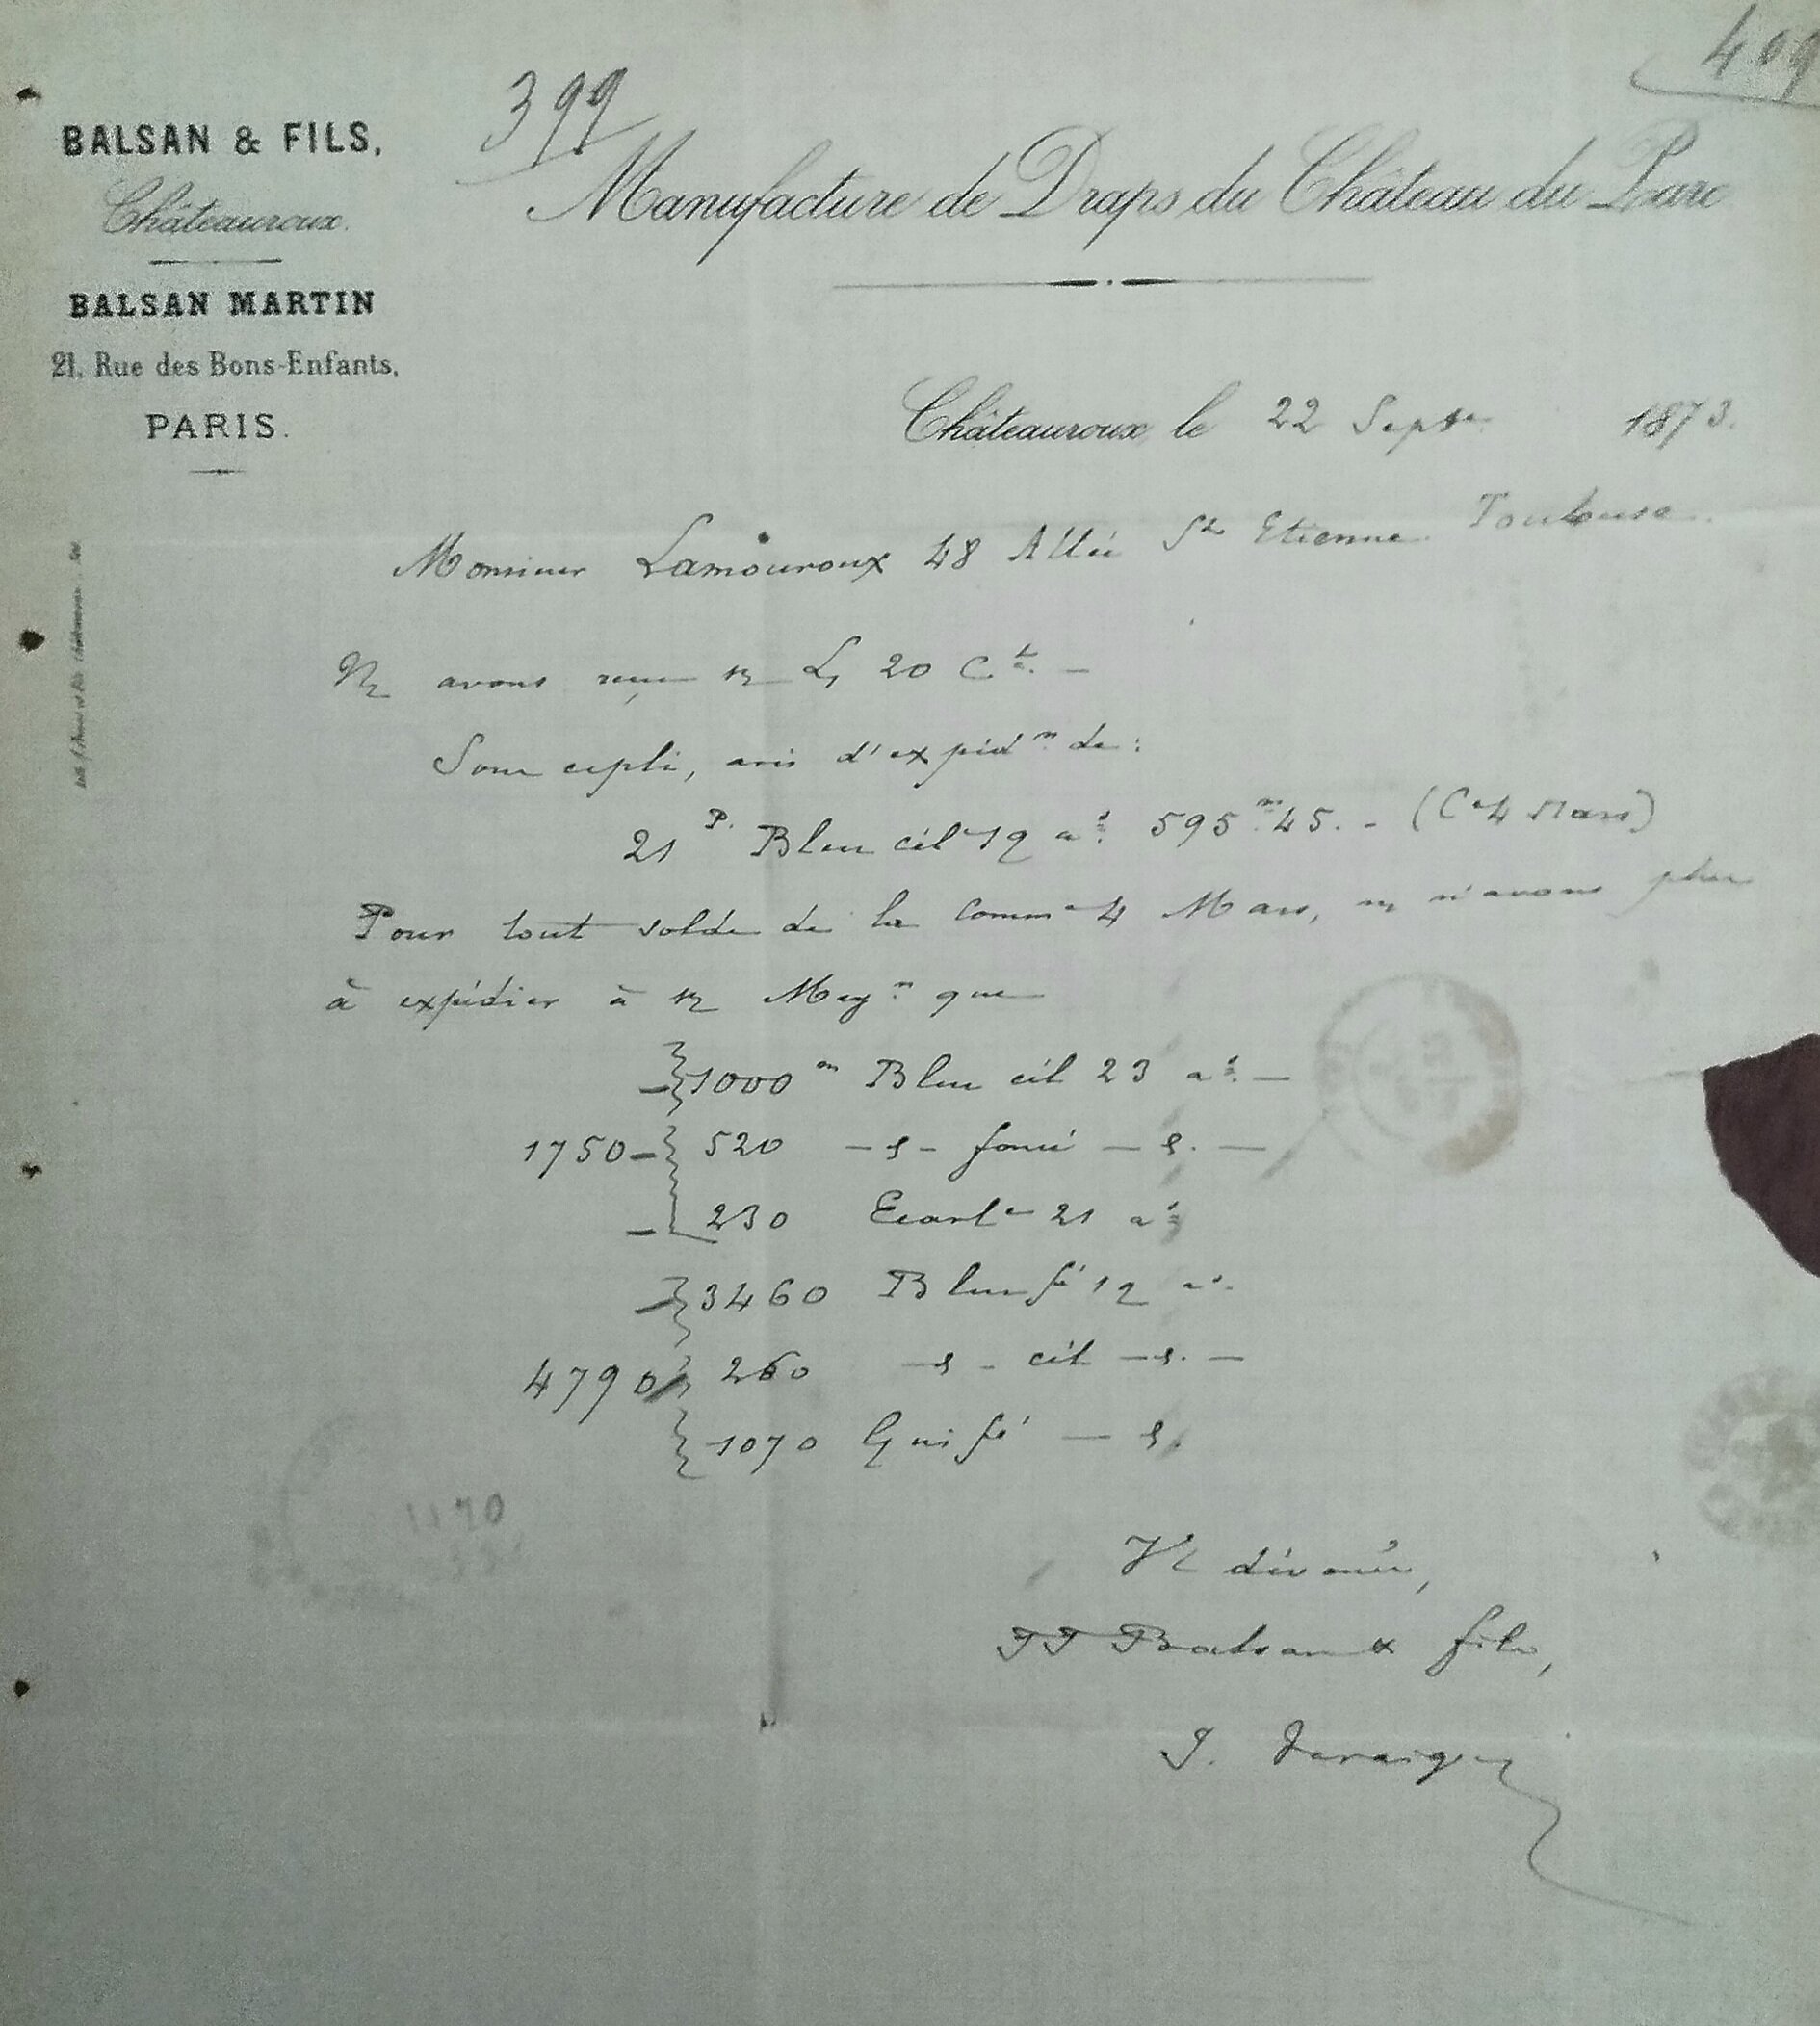 399
409
BALSAN & FILS,
Châteauroux.
BALSAN MARTIN
21, Rue des Bons-Enfants,
PARIS.
Manufacture de Draps du Château du Parc
Châteauroux, le 22 Septre 1873.
Monsieur Lamouroux 48 Allée St Etienne Toulouse.
Ns avons reçu vs L, 20 Ct. —
Sous ce pli, avis d'expédon de :
21 P. Bleu cél 19 as 595m45. - (Ce 4 Mars)
Pour tout solde de la Comme 4 Mars, ns n'avons plus
à expédier à vs Magon que
1000m Bleu cél 23 as. —
1750 — 520 — d - foncé — d. —
230 Ecarlte 21 as
3460 Bleu fé 19 as.
4790 260 — d - cél — d. —
1070 Gris fé — d.
1190
Vs dévoués,
JJ Balsan & fils,